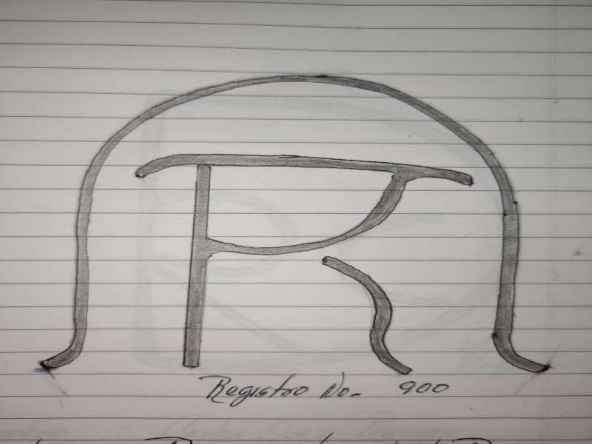 R
Registro No. 900